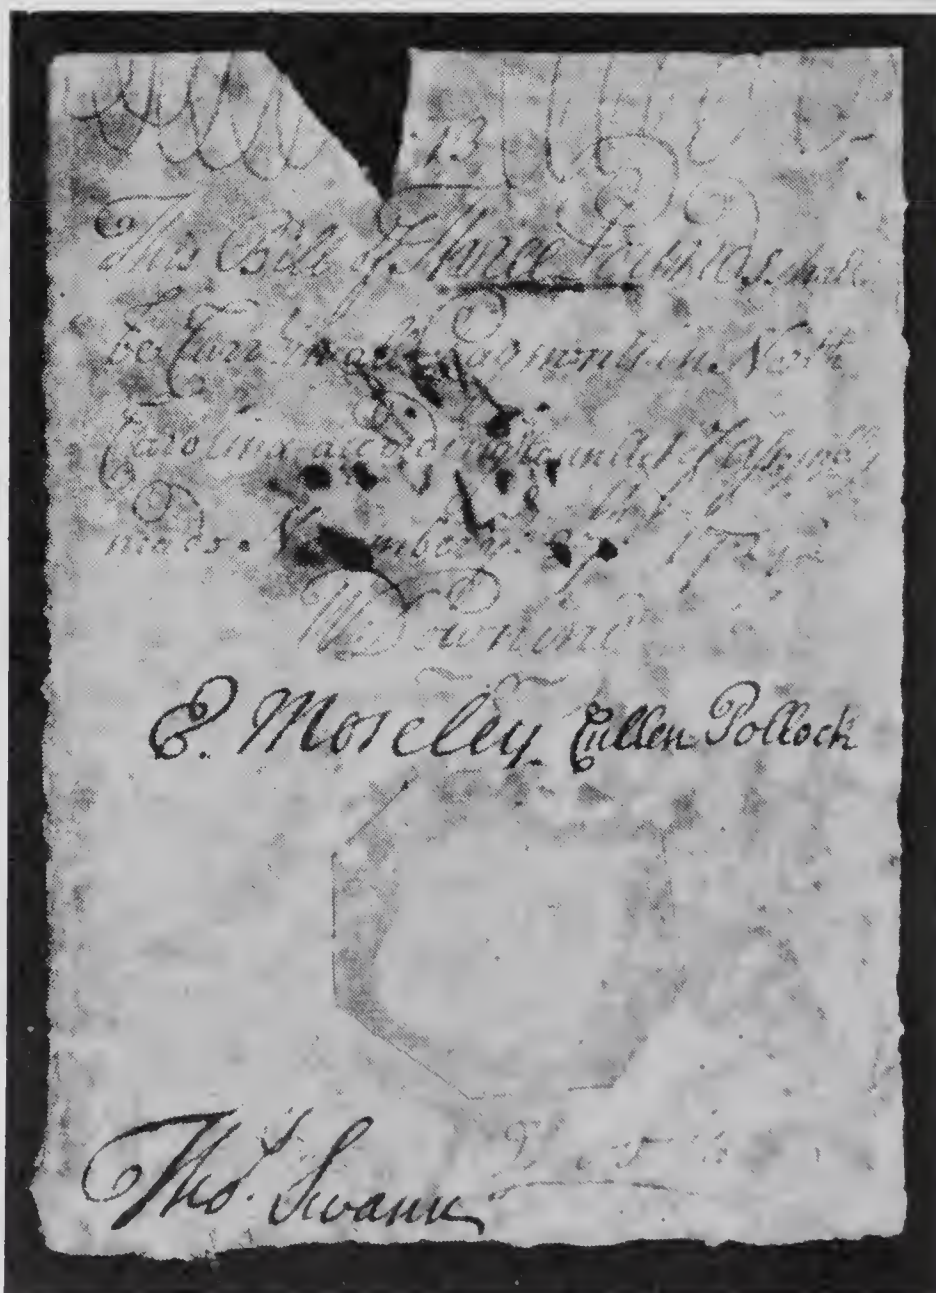 13
This Bill of Three Pounds shall
be Current in all Payments in North
Carolina according to an Act of Assembly
made November 27th 1729
Wm Downing
E. Moseley Cullen Pollock
Tho. Swann